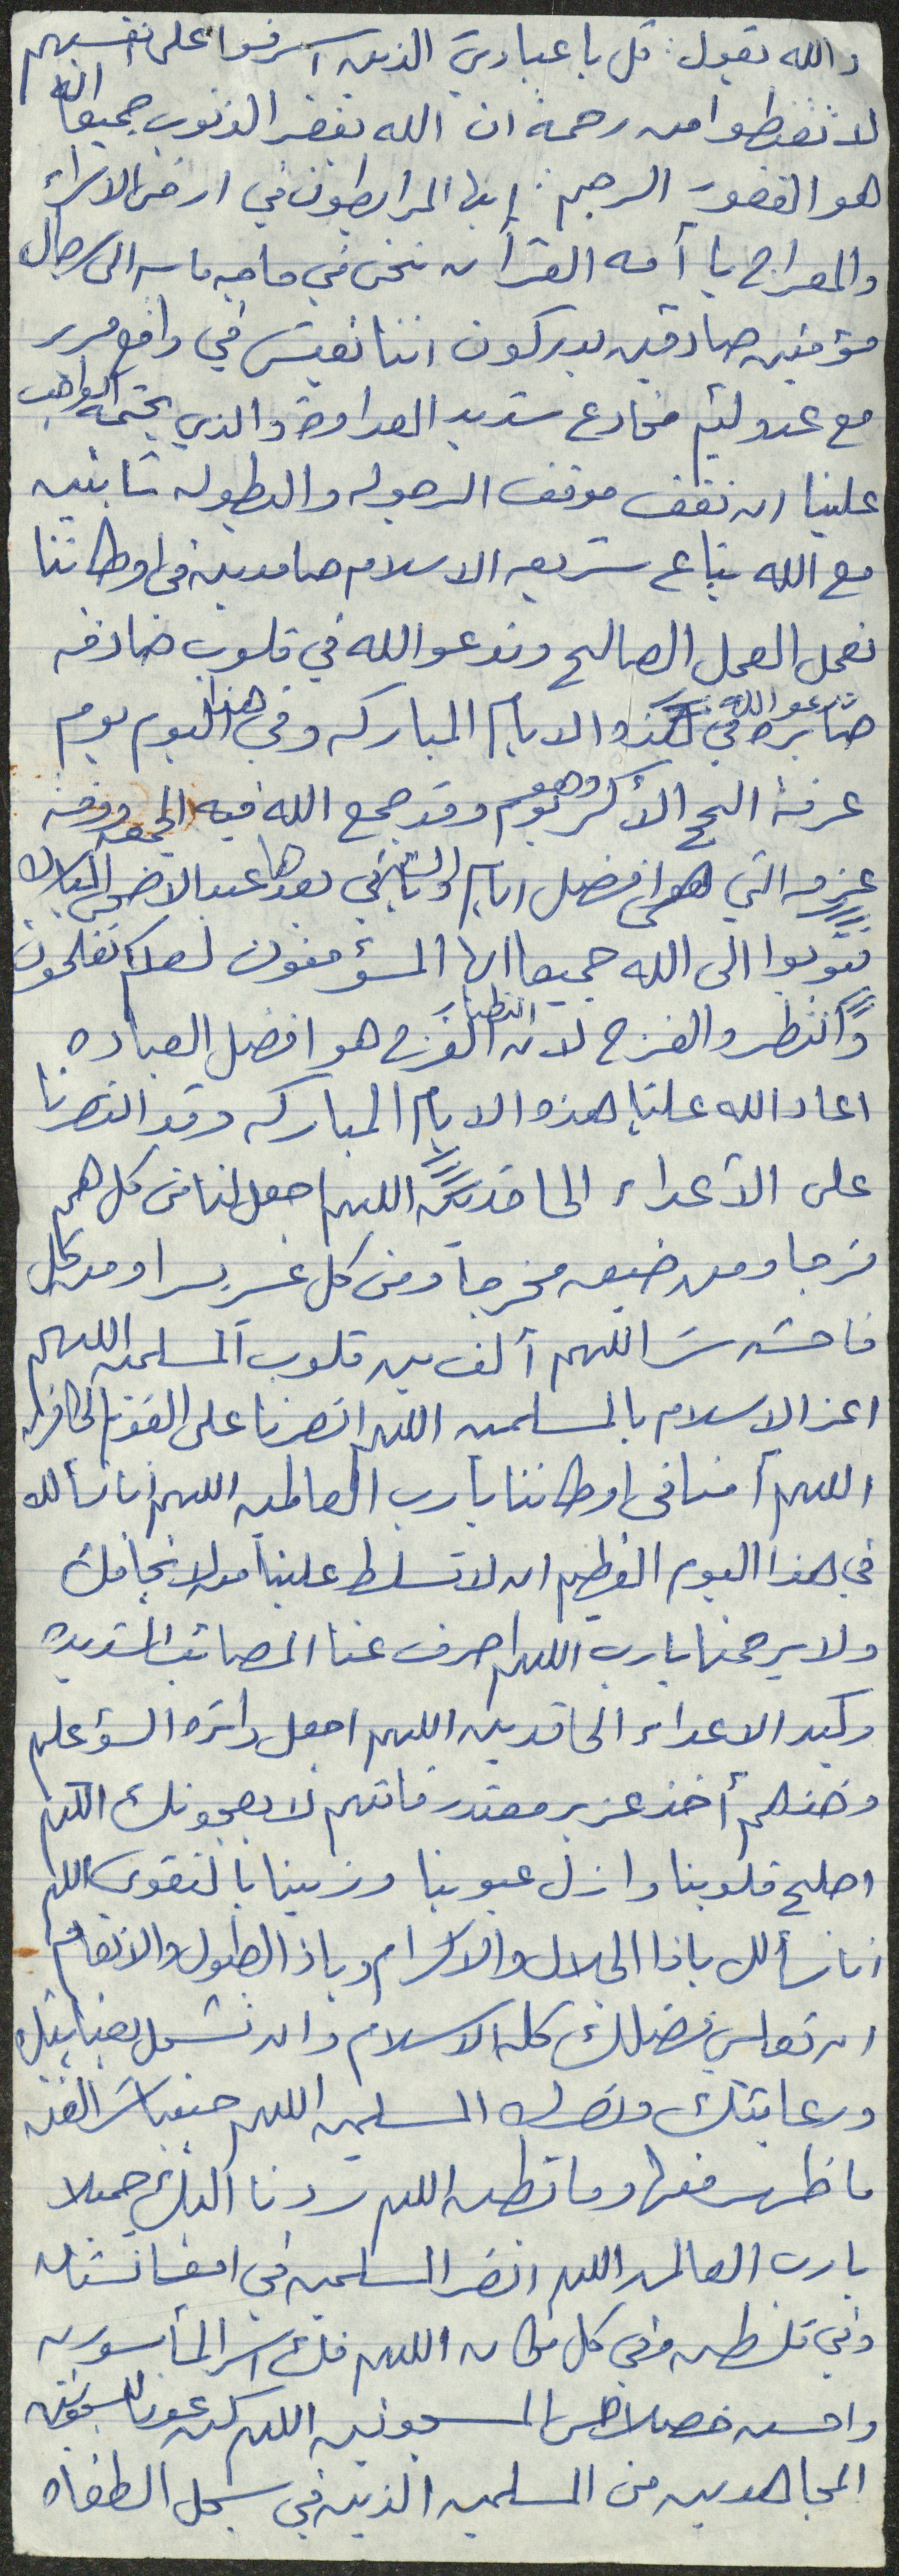 والله يقول: قل يا عبادي الذين اسرفوا على انفسهم
لا تقنطوا من رحمة الله ان الله يغفر الذنوب جميعا انه
هو الغفور الرحيم: ايها المرابطون في ارض الاسراء
والمعراج يا أمه القرأن نحن في حاجه ماسه الى رجال
مؤمنين صادقين يدركون اننا نعيش في واقع مرير
مع عدو لئيم مخادع شديد العداوة والذي يحتمه الواجب
علينا ان نقف موقف الرجوله والبطوله ثابتين
مع الله بتباع شريعه الاسلام صامدين في اوطاننا
نعمل العمل الصالح وندعو الله في قلوب صادقه
صابره ندعو الله في هذه الايام المباركه وفي هذا اليوم يوم
عرفة الحج الأكبر وهو يوم وقد جمع الله فيه الجمعه ووقفه
عرفه التي هي افضل ايام والتي ياتي بعدها عيد الاضحى المبارك
فتوبوا الى الله جميعا ايها المؤمنون لعلكم تفلحون
وانتظروا الفرج لان انتظار الفرج هو افضل العباده
اعاد الله علينا هذه الايام المباركه وقد انتصرنا
على الأعداء الحاقدين اللهم اجعل لنا من كل هم
فرجا ومن كل ضيق مخرجا ومن كل عسر يسرا ومن كل
فاحشه سترا اللهم ألف بين قلوب المسلمين اللهم
اعز الاسلام بالمسلمين اللهم انصرنا على القوم الكافرين
اللهم أمنا في اوطاننا يا رب العالمين اللهم انا نسألك
في هذا اليوم العظيم ان لا تسلط علينا من لا يخافك
ولا يرحمنا يا رب اللهم اصرف عنا المصائب الشديده
وكيد الاعداء الحاقدين اللهم اجعل دائره السوء عليهم
وخذهم أخذ عزيز مقتدر فانهم لا يعجزونك اللهم
اصلح قلوبنا وازل عيوبنا وزينا بالتقوى اللهم
انا نسألك ياذا الجلال والاكرام وياذا الطول والانعام
ان تعلي بفضلك كلمه الاسلام وان تشمل بعنايتك
ورعايتك ونصرك المسلمين اللهم جنبنا الفتن
ما ظهر منها وما بطن اللهم ردنا اليك ردا جميلا
يا رب العالمين اللهم انصر المسلمين في افغانستان
وفي فلسطين وفي كل مكان اللهم فك اسر المأسورين
واحسن خلاص المسجونين اللهم كن عونا للمسجونين
المجاهدين من المسلمين الذين في سجل الطغاه